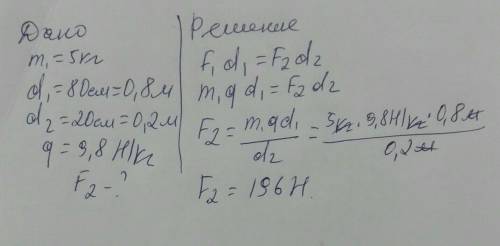 Дано
m₁ = 5кг
d₁ = 80см = 0,8м
d₂ = 20см = 0,2м
g = 9,8 Н/кг
F₂ - ?
Решение
F₁ d₁ = F₂ d₂
m₁ g d₁ = F₂ d₂
F₂ = m₁ g d₁ / d₂ = 5кг · 9,8Н/кг · 0,8м / 0,2м
F₂ = 196Н.